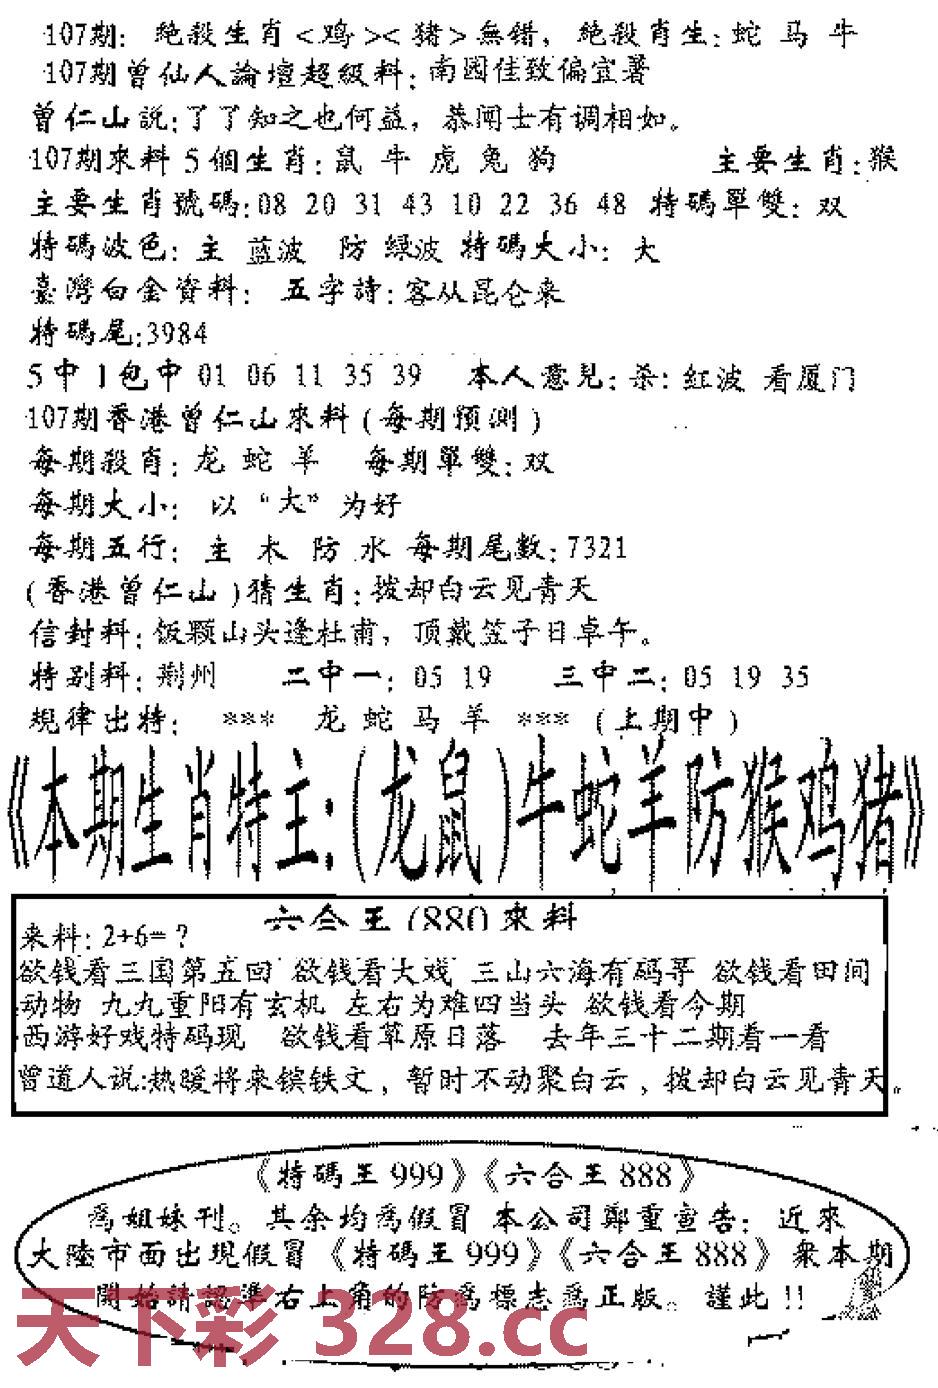 107期: 絶殺生肖<鸡><猪>無错, 絶殺肖生:蛇 马 牛
107期曾仙人論壇超級料:南园佳致偏宜暑
曾仁山説:了了知之也何益，恭闻士有调相如。
107期來料 5 個生肖:鼠 牛 虎 兔 狗 主要生肖:猴
主要生肖號碼:08 20 31 43 10 22 36 48 特碼單雙: 双
特碼波色: 主 蓝波 防 绿波 特碼大小: 大
臺灣白金資料: 五字詩:客从昆仑来
特碼尾:3984
5 中 1 包中 01 06 11 35 39 本人意見:杀:红波 看厦门
107期香港曾仁山來料(每期預測)
每期殺肖:龙 蛇 羊 每期單雙:双
每期大小: 以“大”为好
每期五行: 主 木 防 水 每期尾数:7321
(香港曾仁山)猜生肖:拨却白云见青天
信封料:饭颗山头逢杜甫，顶戴笠子日卓午。
特别料:荆州 二中一: 05 19 三中二:05 19 35
規律出特: *** 龙 蛇 马 羊 *** (上期中)
《本期生肖特主:(龙鼠)牛蛇羊防猴鸡猪》
六合王(880)來料
来料: 2+6=?
欲钱看三国第五回 欲钱看大戏 三山六海有码寻 欲钱看田间
动物 九九重阳有玄机 左右为难四当头 欲钱看今期
西游好戏特码现 欲钱看草原日落 去年三十二期看一看
曾道人说:热暖将来镔铁文，暂时不动聚白云，拨却白云见青天。
《特碼王 999》《六合王 888》
爲姐妹刊。其余均爲假冒 本公司鄭重宣告: 近來
大陸市面出現假冒《特碼王 999》《六合王 888》衆本期
開始請認準右上角的防爲標志爲正版。謹此!!
天下彩 328.cc